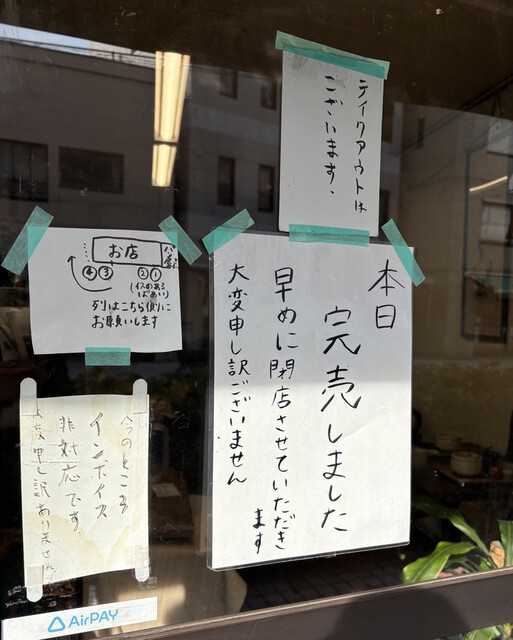 テイクアウトは
ございます。
本日
完売しました
早めに閉店させていただき
ます
大変申し訳ございません
お店
④③ ②①
(イスのある
ばあい)
列はこちら側に
お願いします
今のところ
インボイス
非対応です
大変申し訳ありません
AirPAY